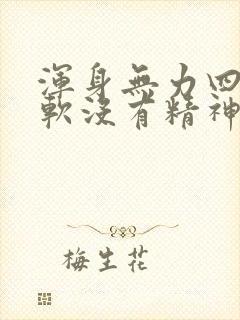 渾身無力四
軟沒有精神
梅生花